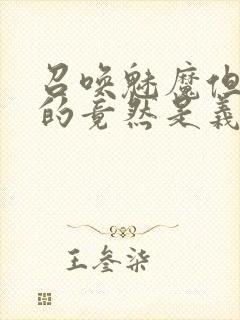 召唤魅魔但
的竟然是義
王叁柒